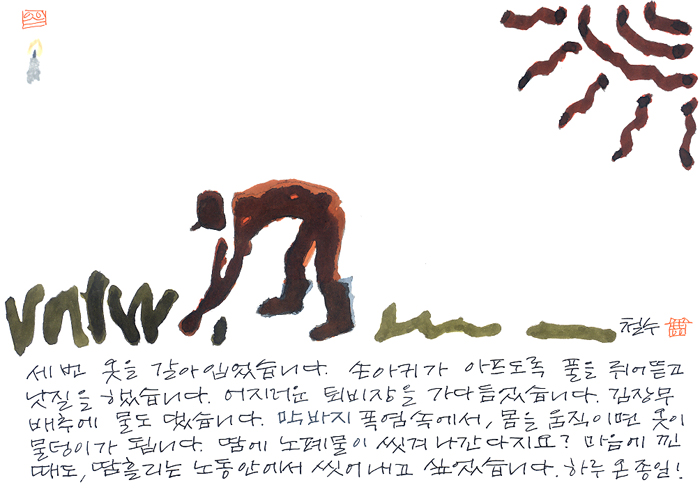 철수
세 번 옷을 갈아입었습니다. 손아귀가 아프도록 풀을 쥐어뜯고
낫질을 했습니다. 어지러운 퇴비장을 가다듬었습니다. 김장무
배추에 물도 댔습니다. 막바지 폭염속에서, 몸을 움직이면 옷이
물덩이가 됩니다. 땀에 노폐물이 씻겨 나간다지요? 마음에 낀
때도, 땀흘리는 노동안에서 씻어내고 싶었습니다. 하루 온종일!